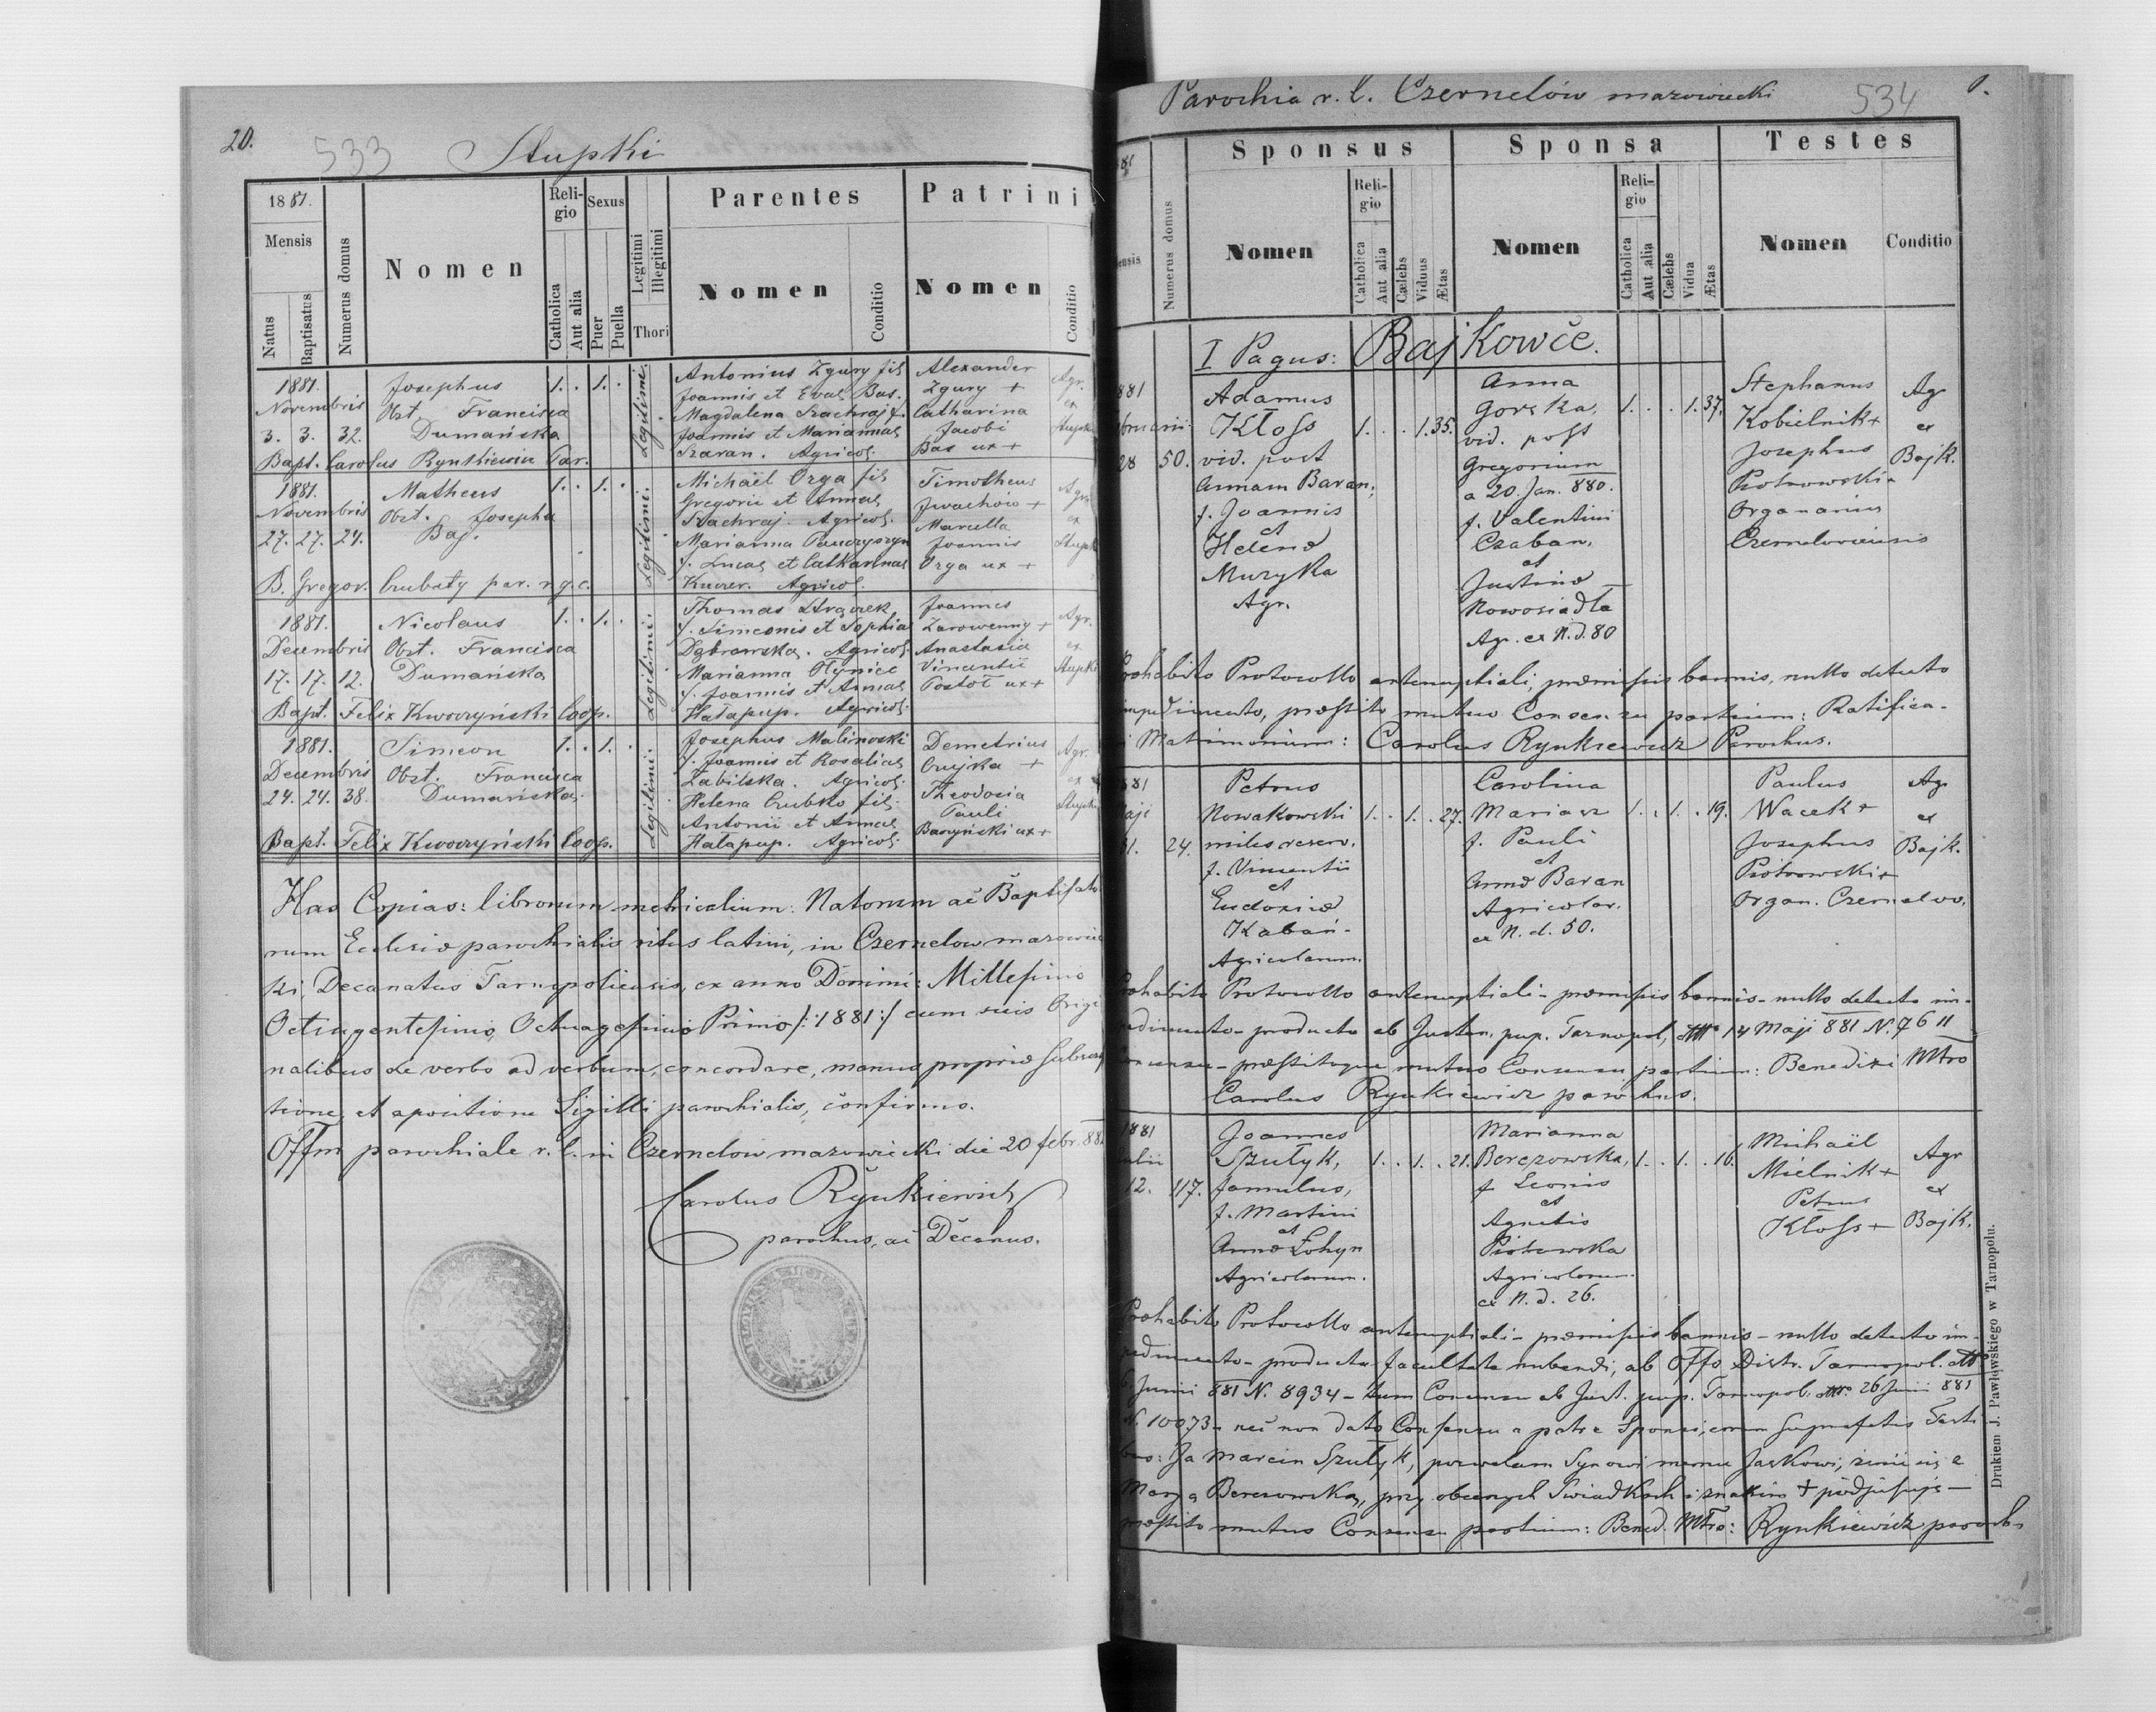 20.
533
Stupki
1881.
Mensis
Natus
Baptisatus
Numerus domus
Nomen
Reli-
gio
Catholica
Aut alia
Sexus
Puer
Puella
Legitimi
Illegitimi
Thori
Parentes
Nomen
Conditio
Patrini
Nomen
Conditio
1881.
Novembris
3. 3. 32.
Josephus
Obst. Francisca
Dumańska
1. . 1. .
Legitimi.
Antonius Zgury fil.
Joannis et Evae Bas.
Magdalena Szachraj f.
Joannis et Mariannae
Szaran. Agricol.
Alexander
Zgury +
Catharina
Jacobi
Bas ux +
Agr.
ex
Stupki
Bapt. Carolus Rynkiewicz Par.
1881.
Novembris
27. 27. 24.
Matheus
Obst. Josepha
Baj.
1. . 1. .
Legitimi.
Michaël Orga fil.
Gregorii et Annae
Szachraj. Agricol.
Marianna Panczyszyn
f. Lucae et Catharinae
Kuczer. Agricol.
Timotheus
Jwachów +
Marcella
Joannis
Orga ux +
Agr.
ex
Stupk
B. Gregor. Cubaty par. r.g.c.
1881.
Decembris
17. 17. 12.
Nicolaus
Obst. Francisca
Dumańska
1. . 1. .
Legitimi.
Thomas
f. Simeonis et Sophiae
Dąbrowska. Agricol.
Marianna Olynice
f. Joannis et Annae
Hałapup. Agricol.
Joannes
Zarowenny +
Anastasia
Vincentii
Postoł ux +
Agr.
ex
Stupki
Bapt. Felix Kwoczyński Coop.
1881.
Decembris
24. 24. 38.
Simeon
Obst. Francisca
Dumańska.
1. . 1. .
Legitimi.
Josephus Malinoski
f. Joannis et Rosaliae
Zabilska. Agricol.
Helena Czubko fil.
Antonii et Annae
Hałapup. Agricol.
Demetrius
Czujka +
Theodosia
Pauli
Baszyński ux +
Agr.
ex
Stupki
Bapt. Felix Kwoczyński Coop.
Has Copias: librorum metricalium: Natorum ac Baptisato
rum Ecclesiae parochialis ritus latini, in Czernelow mazowiec
ki, Decanatus Tarnopoliensis, ex anno Domini: Millesimo
Octingentesimo, Octuagesimo Primo /:1881:/ cum suis Origi
nalibus de verbo ad verbum, concordare, manus propriae subscrip
tione, et apositione Sigilli parochialis, confirmo.
Offm parochiale r. l. in Czernelow mazowiecki die 20 febr. 88
Carolus Rynkiewicz
parochus, ac Decanus.
Parochia r. l. Czernelów mazowiecki
534
1.
Numerus domus
Sponsus
Nomen
Reli-
gio
Catholica
Aut alia
Cælebs
Viduus
Ætas
Sponsa
Nomen
Reli-
gio
Catholica
Aut alia
Cælebs
Vidua
Ætas
Testes
Nomen
Conditio
I Pagus: Bajkowce.
881
bruarii
28 50.
Adamus
Kłoss
vid. post
Annam Baran,
f. Joannis
et
Helenae
Muzyka
Agr.
1. . . 1. 35.
Anna
Gorska,
vid. post
Gregorium
a 20. Jan. 880.
f. Valentini
Czaban,
et
Justinae
Nowosiadla
Agr. ex N. d. 80
1. . . 1. 37.
Stephanus
Kobielnik +
Josephus
Piotrowski +
Organarius
Czerneloviensis
Agr
ex
Bajk.
Prohabito Protocollo antenuptiali, praemissis bannis, nullo detecto
impedimento, praestito mutuo Consensu partium: Ratifica-
i Matrimonium: Carolus Rynkiewicz Parochus.
881
Maji
31. 24.
Petrus
Nowakowski
miles reserv.
f. Vincentii
et
Eudoxiae
Kabań-
Agricolarum.
1. . 1. . 27.
Carolina
Mariasz
f. Pauli
et
Annae Baran
Agricolar.
ex N. d. 50.
1. . 1. . 19.
Paulus
Wacek +
Josephus
Piotrowski +
Organ. Czernelov.
Agr
ex
Bajk.
Prohabito Protocollo antenuptiali - praemissis bannis - nullo detecto im-
pedimento - producto ab Justan. pup. Tarnopol, 14 Maji 881 N. 7611
Consensu - praestitoque mutuo Consensu partium: Benedixi Mtro
Carolus Rynkiewicz parochus.
1881
Julii
12. 117.
Joannes
Szułyk,
famulus,
f. Martini
et
Annae Łohyn
Agricolarum.
1. . 1. . 21.
Marianna
Berezowska,
f. Leonis
et
Agnetis
Piotrowska
Agricolarum.
ex N. d. 26.
1. . 1. . 16.
Michaël
Mielnik +
Petrus
Kłoss +
Agr
ex
Bajk.
Prohabito Protocollo antenuptiali - praemissis bannis - nullo detecto im-
pedimento - producta facultate nubendi, ab Offo Distr. Tarnopol.
6. Junii 881 N. 8934 - tum Consensu ab Just. pup. Tarnopol. 26 Junii 881
N. 10073 - nec non dato Consensu a patre Sponsi, coram suprafatis Testi
bus: Ja Marcin Szułyk, pozwalam Synowi memu Jaskowi, żenić się z
Maryą Berezowską, przy obecnych Świadkach i znakiem + podpisuję -
praestito mutuo Consensu partium: Bened. Mtro: Rynkiewicz paroch.
Drukiem J. Pawłowskiego w Tarnopolu.